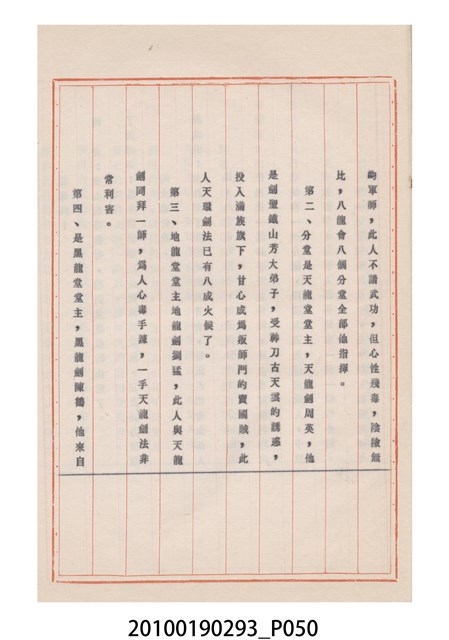 的軍師，此人不諳武功，但心性殘毒，陰險無
比，八龍會八個分堂全部他指揮。
第二、分堂是天龍堂堂主，天龍劍周英，他
是劍聖鐵山芳大弟子，受神刀古天雲的誘惑，
投入滿族旗下，甘心成為叛師門的賣國賊，此
人天璣劍法已有八成火候了。
第三、地龍堂堂主地龍劍劉猛，此人與天龍
劍同拜一師，為人心毒手辣，一手天龍劍法非
常利害。
第四、是黑龍堂堂主，黑龍劍陳鶴，他來自
20100190293_P050